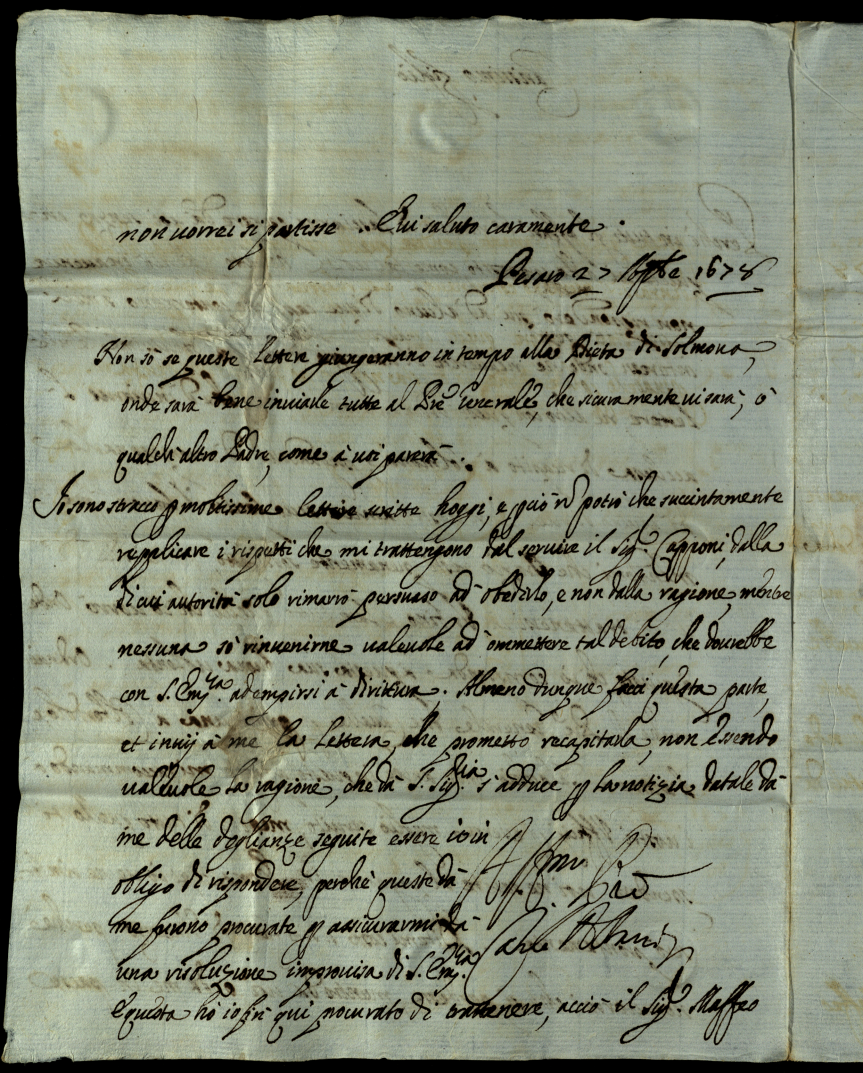 non uorrei si partisse. E ui saluto caramente.
Pesaro 27 1678
Non sò se queste lettere giungeranno in tempo alla Dieta di Solmona,
onde sarà bene inuiarle tutte al Pre Generale, che sicuramente ui sarà, ò
qualch'altro Padre, come à uoi parerà.
Io sono stracco p moltissime lettere scritte hoggi, e pciò nō potrò che succintamente
repplicare i rispetti che mi trattengono dal seruire il Sigr. Capponi, dalla
di cui autorità solo rimarrò persuaso ad obedirlo, e non dalla ragione, mentre
nessuna sò rinuenirne ualeuole ad ommettere tal debito, che dourebbe
con S. Emza. adempirsi à diritura. Almeno dunque facci questa parte,
et inuij à me la lettera, che prometto recapitarla, non essendo
ualeuole la ragione, che dà S. Sigria s'adduce p la notizia datale dà
me delle doglianze seguite essere io in
obligo di rispondere, perche queste dà
me furono procurate p assicurarmi dà
una risoluzione improuisa di S. Emza.
e questa hò io fin qui procurato di trattenere, acciò il Sigr. Maffeo
Pre